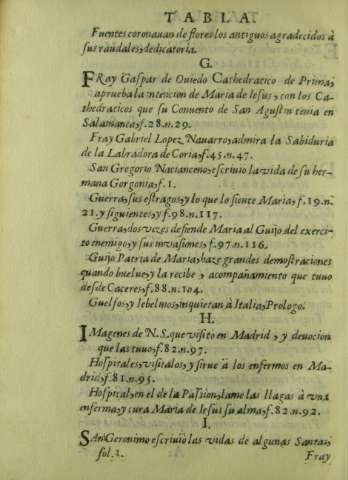 TABLA.
Fuentes coronauan de flores los antiguos agradecidos à
sus raudales, dedicatoria.
G.
FRay Gaspar de Ouiedo Cathedratico de Prima,
aprueba la intencion de Maria de Iesus, con los Ca-
thedraticos que su Conuento de San Agustin tenia en
Salamanca, f.28.n.29.
Fray Gabriel Lopez Nauarro, admira la Sabiduria
de la Labradora de Coria, f.45.n.47.
San Gregorio Nacianceno, escriuio la vida de su her-
mana Gorgonia, f.1.
Guerra, sus estragos, y lo que lo siente Maria, f.19.n.
21.y siguientes, y f.98.n.117.
Guerra, dos vezes defiende Maria al Guijo del exerci-
to enemigo, y sus inuasiones, f.97.n.116.
Guijo Patria de Maria, haze grandes demostraciones
quando buelue, y la recibe, y acompañamiento que tuuo
desde Caceres, f.88.n.104.
Guelfos, y lebelinos, inquietan à Italia, Prologo.
H.
IMagenes de N.S. que visito en Madrid, y deuocion
que las tuuo, f.82.n.97.
Hospitales, visitalos, y sirue à los enfermos en Ma-
drid, f.81.n.95.
Hospital, en el de la Passion, lame las llagas à vna
enferma, y cura Maria de Iesus su alma, f.82.n.92.
I.
SAn Geronimo escriuiò las vidas de algunas Santas,
fol.1.
Fray